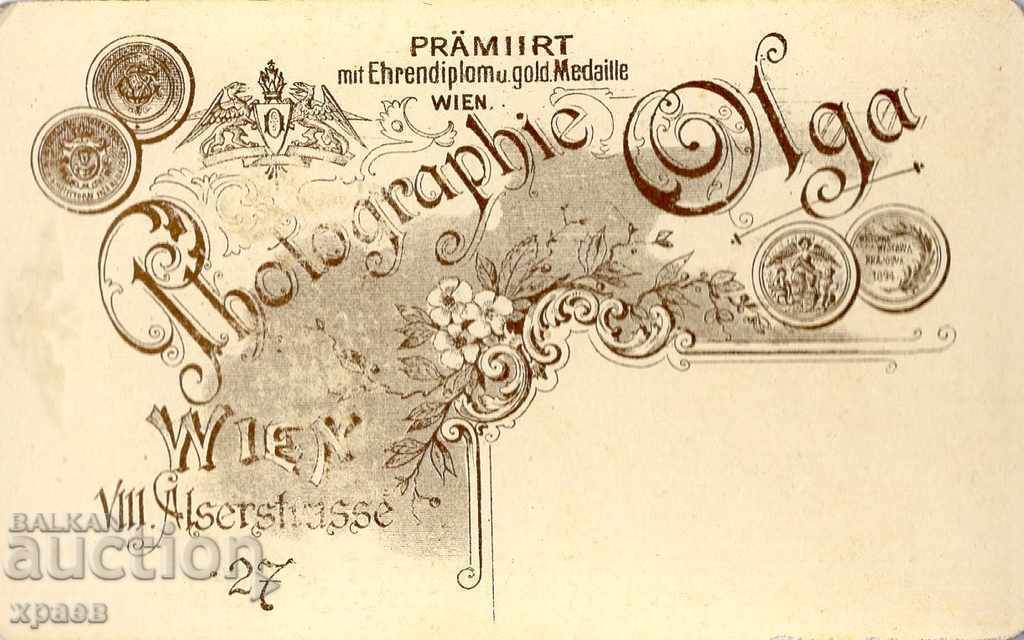 PRÄMIIRT
mit Ehrendiplom u. gold. Medaille
WIEN.
Photographie Olga
WYSTAWA
KRAJOWA
1894
WIEN
VIII. Alserstrasse
27
BALKAN
auction
храев